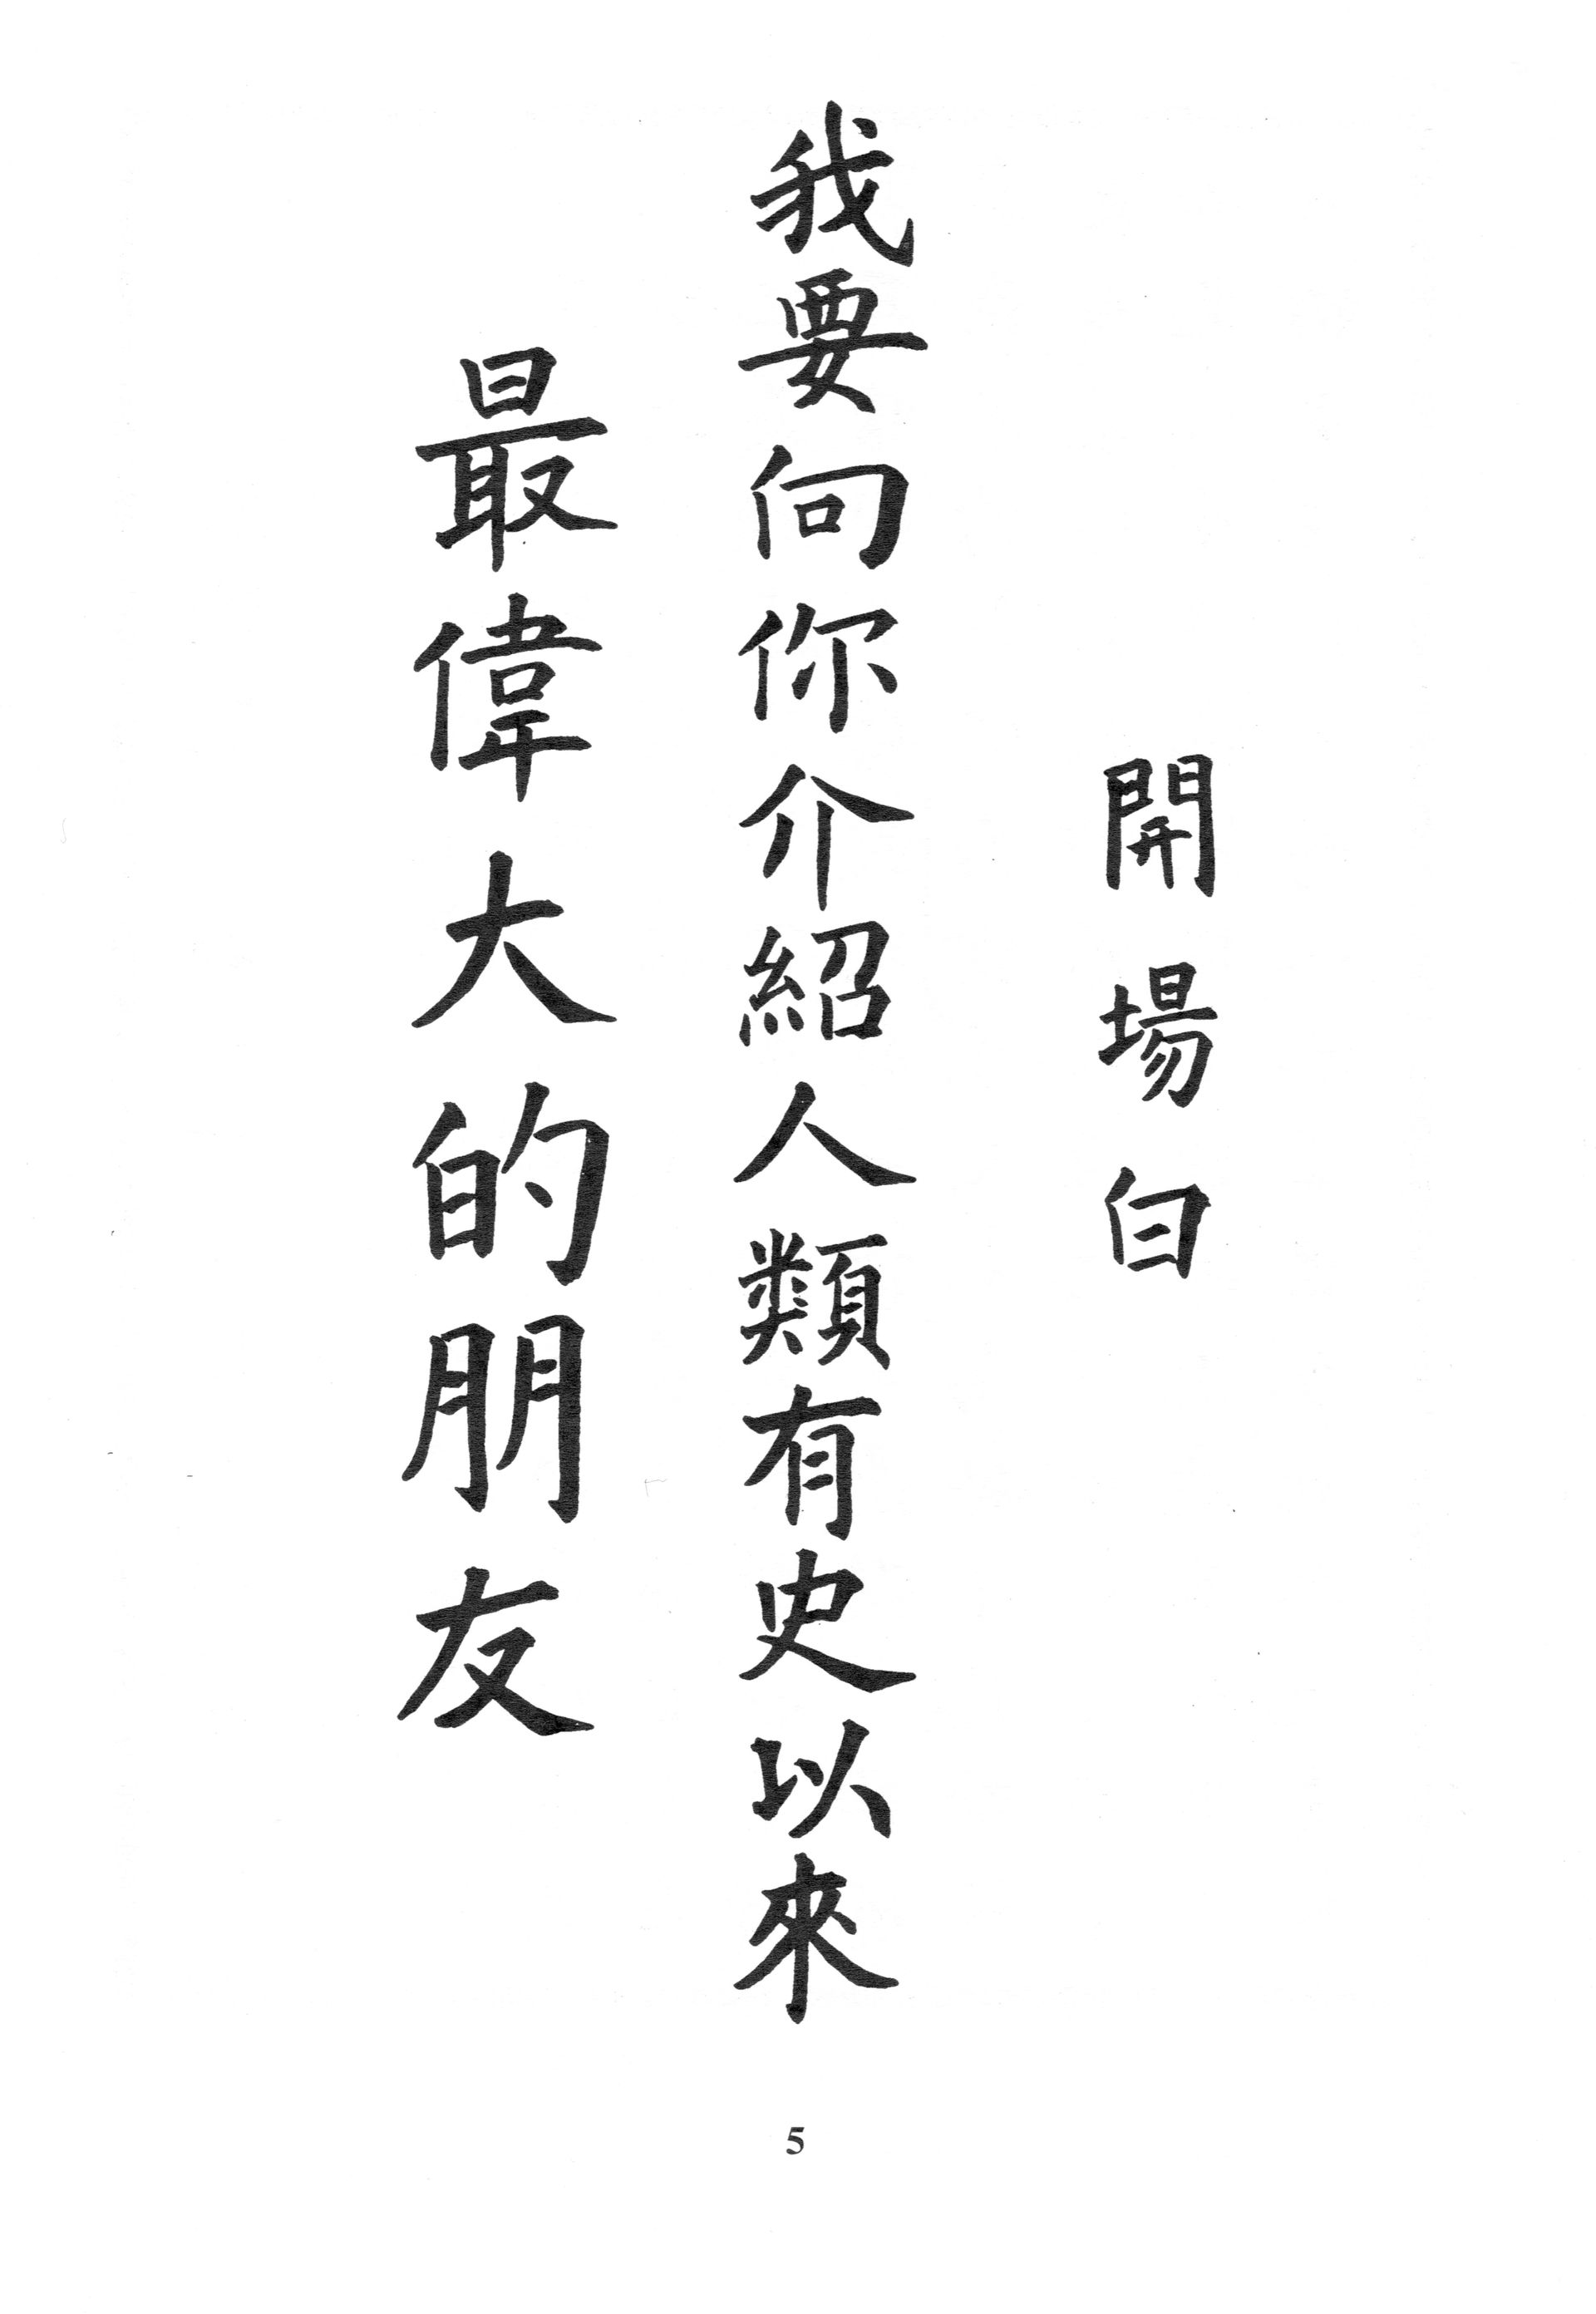 開場白
我要向你介紹人類有史以來
最偉大的朋友
5